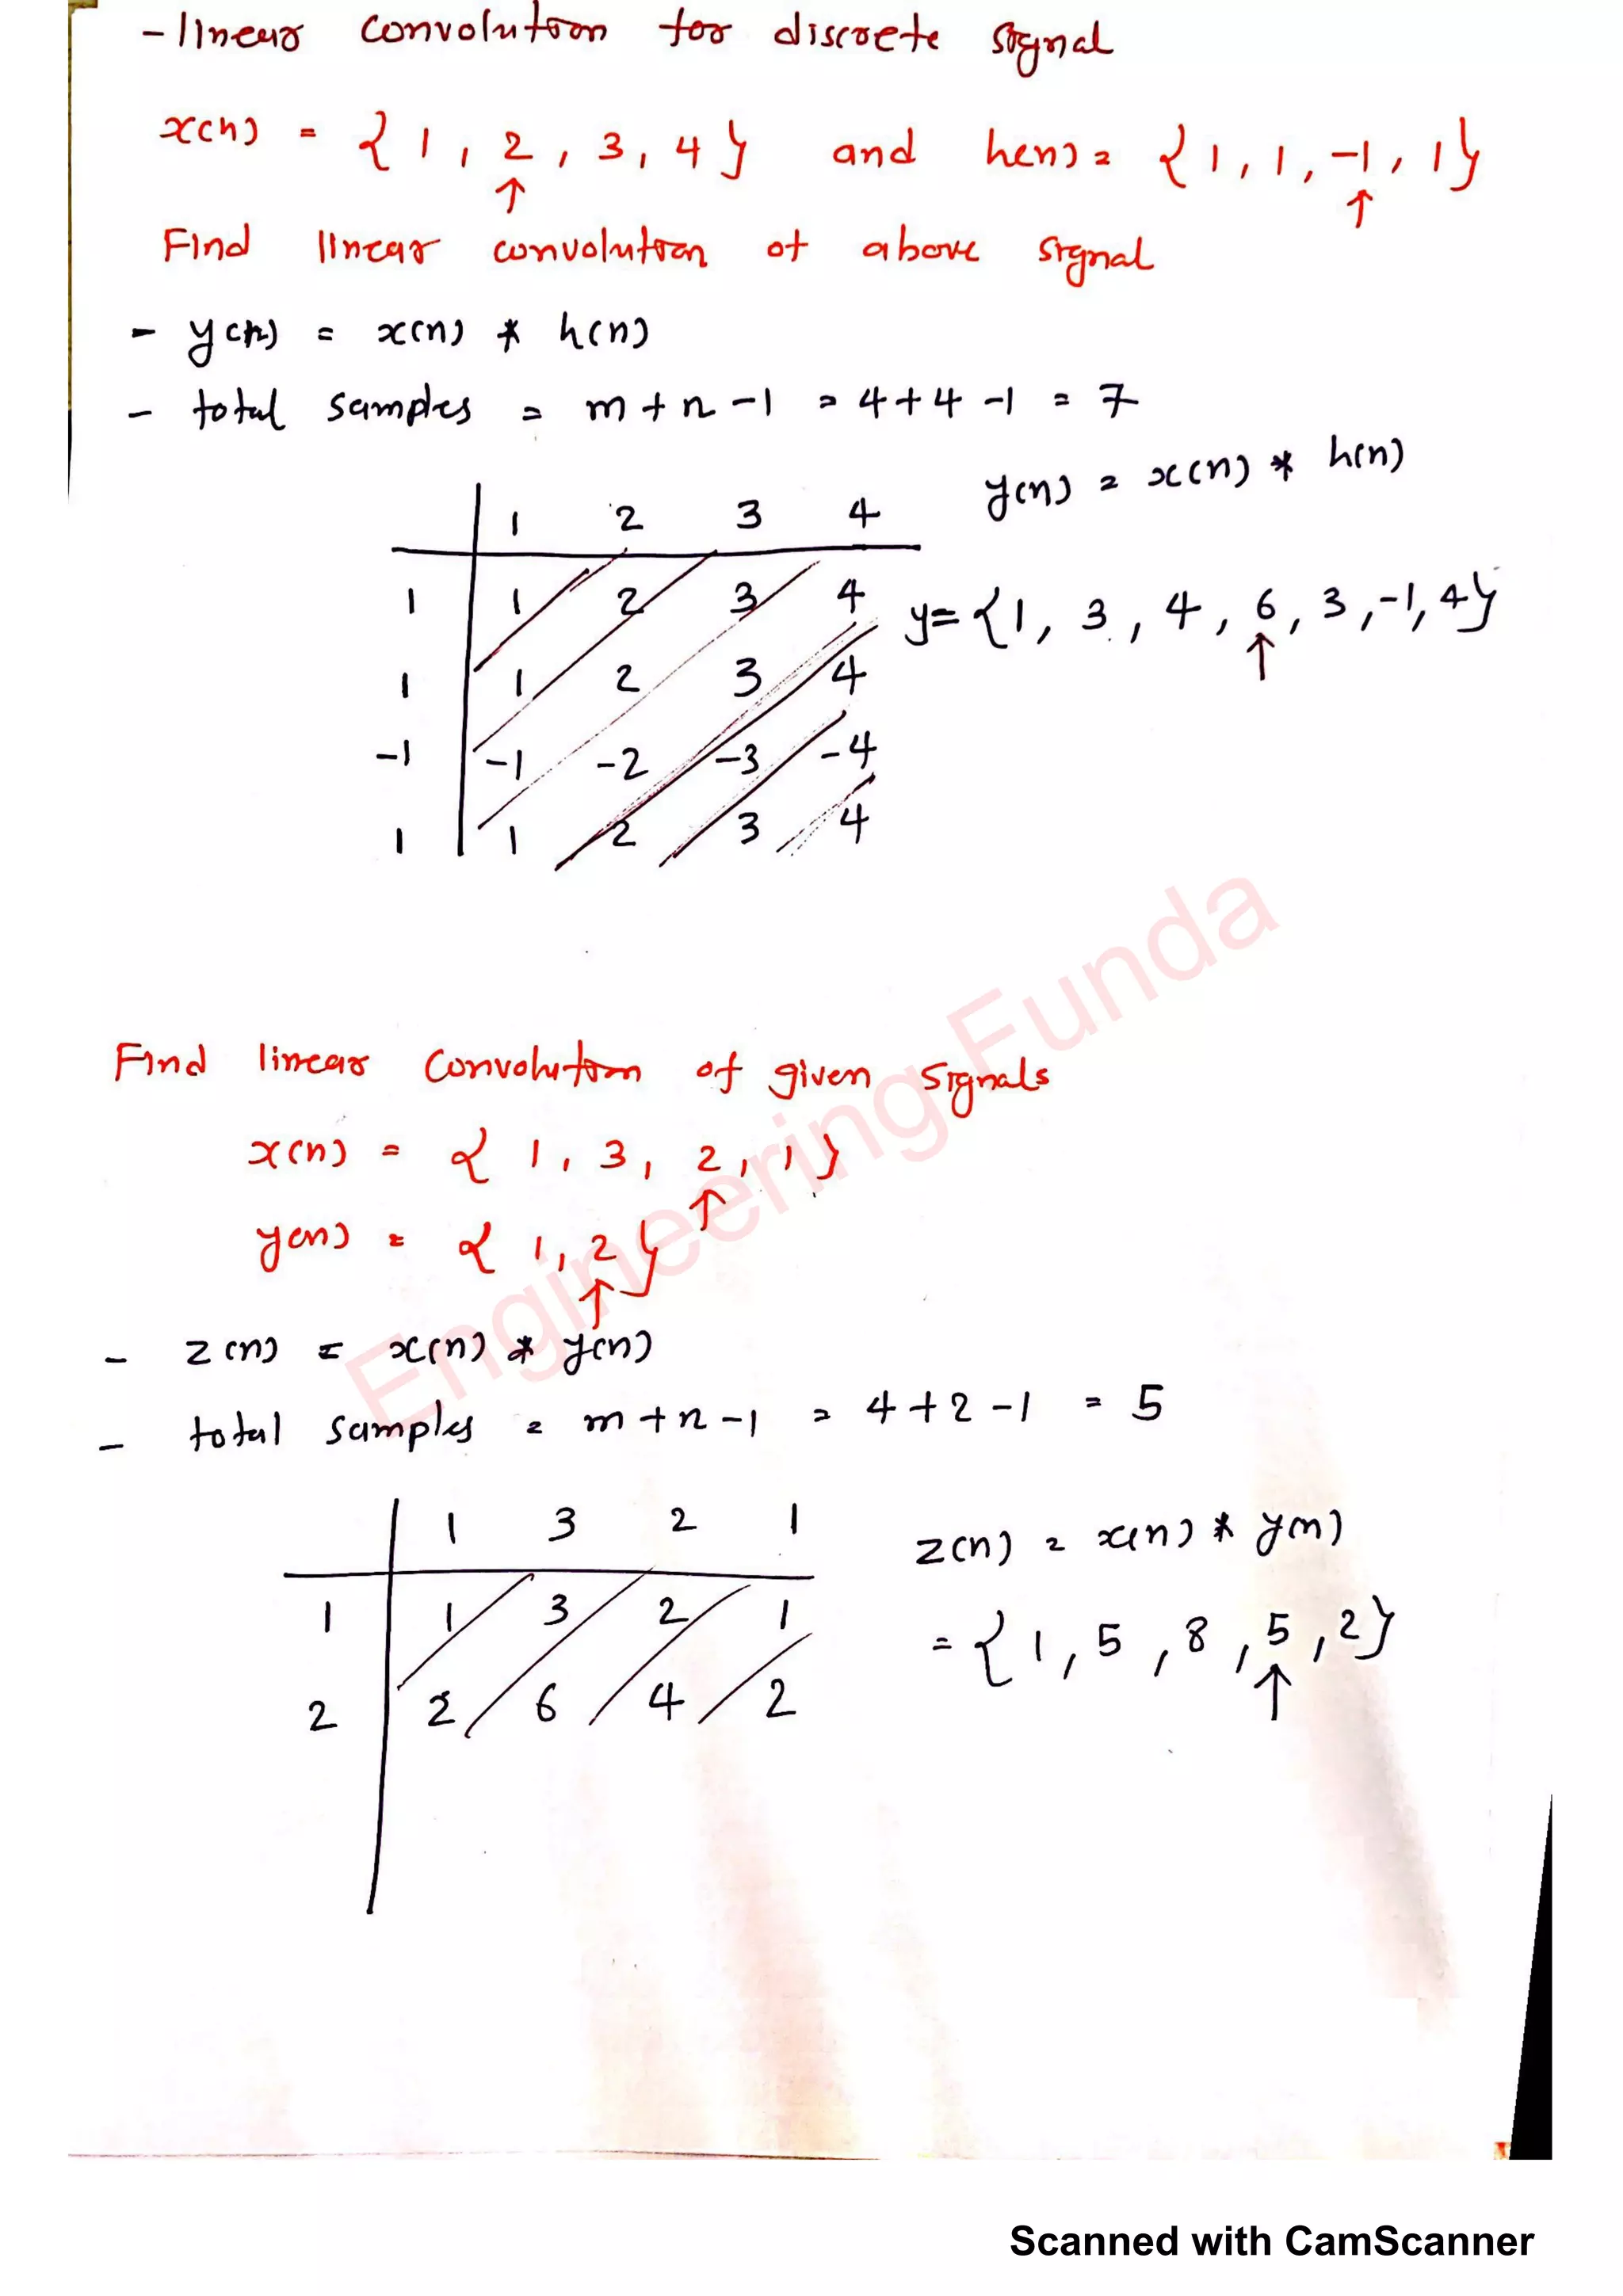 - linear convolution for discrete signal
x(n) = { 1 , 2 , 3 , 4 } and h(n) = { 1 , 1 , -1 , 1 }
↑ ↑
Find linear convolution of above signal
- y(n) = x(n) * h(n)
- total samples = m + n - 1 = 4 + 4 - 1 = 7
y(n) = x(n) * h(n)
1 2 3 4
1 1 2 3 4
y = { 1 , 3 , 4 , 6 , 3 , -1 , 4 }
↑
1 1 2 3 4
-1 -1 -2 -3 -4
1 1 2 3 4
Engineering Funda
Find linear convolution of given signals
x(n) = { 1 , 3 , 2 , 1 }
↑
y(n) = { 1 , 2 }
↑
- z(n) = x(n) * y(n)
- total samples = m + n - 1 = 4 + 2 - 1 = 5
1 3 2 1
z(n) = x(n) * y(n)
1 1 3 2 1
= { 1 , 5 , 8 , 5 , 2 }
↑
2 2 6 4 2
Scanned with CamScanner